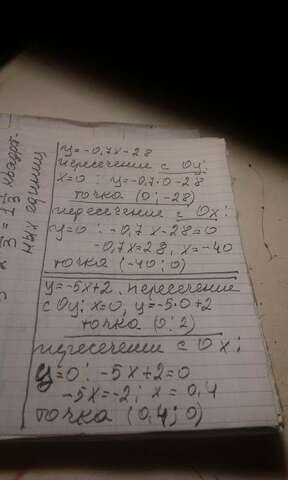 y=-0,7x-28
пересечение с Oy:
x=0 : y=-0,7·0-28
точка (0; -28)
пересечение с Ox:
y=0 : -0,7x-28=0
-0,7x=28, x=-40
точка (-40; 0)
y=-5x+2. пересечение
с Oy: x=0, y=-5·0+2
точка (0; 2)
пересечении с Ox:
y=0: -5x+2=0
-5x=-2; x=0,4
точка (0,4; 0)
= 1 1/3 квадрат-
ных единиц